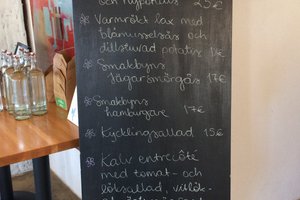 och nyponsås 25€
Varmrökt lax med
blåmusselsås och
dillstuvad potatis 1€
Smakbyns
Jägarsmörgås 17€
Smakbyns
hamburgare 17€
Kycklingsallad 15€
Kalv entrecôté
med tomat- och
löksallad, vitlök-